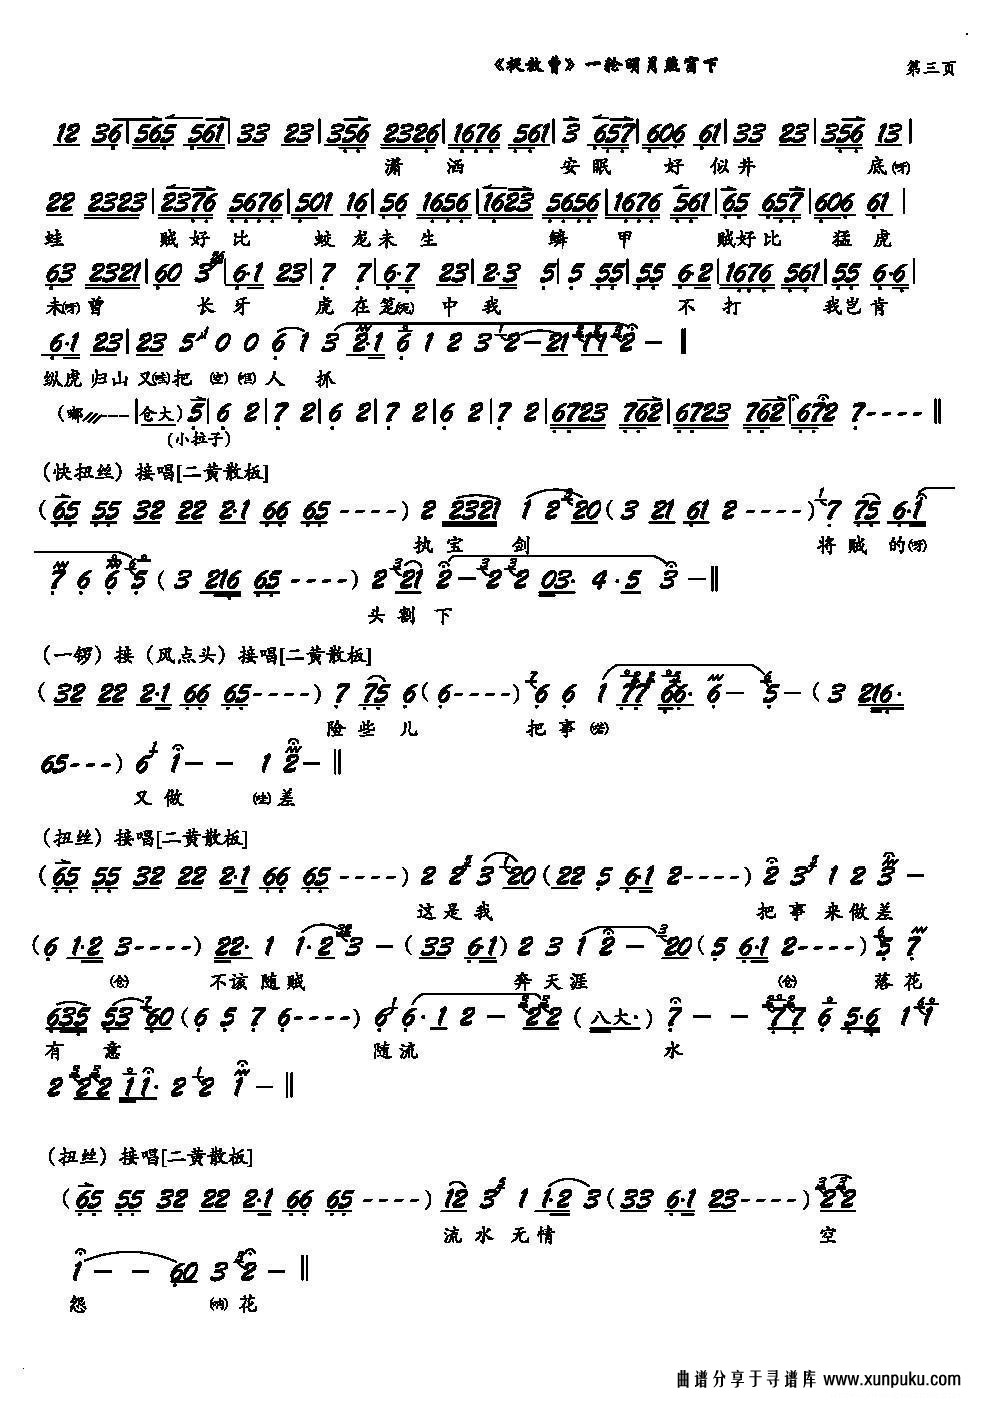 《捉放曹》一轮明月照窗下
第三页
12 36|565 561|33 23|356 2326|1676 561|3 657|606 61|33 23|356 13|
潇 洒 安 眠 好 似 井 底(呀)
22 2323|2376 5676|501 16|56 1656|1623 5656|1676 561|65 657|606 61|
蛙 贼 好 比 蛟 龙 未 生 鳞 甲 贼好比 猛 虎
63 2321|60 3|6·1 23|7 7|6·7 23|2·3 5|5 55|55 6·2|1676 561|55 6·6|
未(呀)曾 长 牙 虎 在 笼 中 我 不 打 我岂肯
6·1 23|23 5 0 0 6 1 3 2·1 6 1 2 3 2-21 77 2-‖
纵虎 归山 又 把 人 抓
(嘟---|仓大)5|6 2|7 2|6 2|7 2|6 2|7 2|6723 762|6723 762|672 7----‖
(小拉子)
(快扭丝)接唱[二黄散板]
(65 55 32 22 2·1 66 65----)2 2321 1 2 20(3 21 61 2----)7 75 6·1
执宝 剑 将 贼 的(呀)
7 6 6 5(3 216 65---)2 21 2-2 2 03· 4·5 3-‖
头 割 下
(一锣)接(风点头)接唱[二黄散板]
(32 22 2·1 66 65----)7 75 6(6----)6 6 1 77 66· 6- 5-(3 216·
险 些 儿 把 事
65---)6 1-- 1 2-‖
又 做 (哇)差
(扭丝)接唱[二黄散板]
(65 55 32 22 2·1 66 65----)2 2 3 20(22 5 6·1 2----)2 3 1 2 3-
这 是 我 把 事 来做差
(6 1·2 3----)22· 1 1·2 3-(33 6·1)2 3 1 2-20(5 6·1 2----)5 7
(仓) 不该 随贼 奔 天 涯 (仓) 落 花
635 53 60(6 5 7 6----)6 6·1 2-22(八大·)7-- 77 6 5·6 1 1
有 意 随 流 水
2 22 11· 2 2 1-‖
(扭丝)接唱[二黄散板]
(65 55 32 22 2·1 66 65----)12 3 1 1·2 3(33 6·1 23----)22
流 水 无 情 空
1-- 60 3 2-‖
怨 (呐)花
曲谱分享于寻谱库 www.xunpuku.com